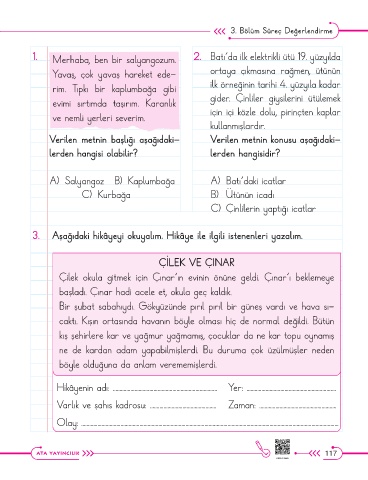 3. Bölüm Süreç Değerlendirme
1. Merhaba, ben bir salyangozum.
Yavaş, çok yavaş hareket ede-
rim. Tıpkı bir kaplumbağa gibi
evimi sırtımda taşırım. Karanlık
ve nemli yerleri severim.
Verilen metnin başlığı aşağıdaki-
lerden hangisi olabilir?
A) Salyangoz B) Kaplumbağa
C) Kurbağa
2. Batı'da ilk elektrikli ütü 19. yüzyılda
ortaya çıkmasına rağmen, ütünün
ilk örneğinin tarihi 4. yüzyıla kadar
gider. Çinliler giysilerini ütülemek
için içi közle dolu, pirinçten kaplar
kullanmışlardır.
Verilen metnin konusu aşağıdaki-
lerden hangisidir?
A) Batı'daki icatlar
B) Ütünün icadı
C) Çinlilerin yaptığı icatlar
3. Aşağıdaki hikâyeyi okuyalım. Hikâye ile ilgili istenenleri yazalım.
ÇİLEK VE ÇINAR
Çilek okula gitmek için Çınar'ın evinin önüne geldi. Çınar'ı beklemeye
başladı. Çınar hadi acele et, okula geç kaldık.
Bir şubat sabahıydı. Gökyüzünde pırıl pırıl bir güneş vardı ve hava sı-
caktı. Kışın ortasında havanın böyle olması hiç de normal değildi. Bütün
kış şehirlere kar ve yağmur yağmamış, çocuklar da ne kar topu oynamış
ne de kardan adam yapabilmişlerdi. Bu duruma çok üzülmüşler neden
böyle olduğuna da anlam verememişlerdi.
Hikâyenin adı: Yer:
Varlık ve şahıs kadrosu: Zaman:
Olay:
ATA YAYINCILIK 117